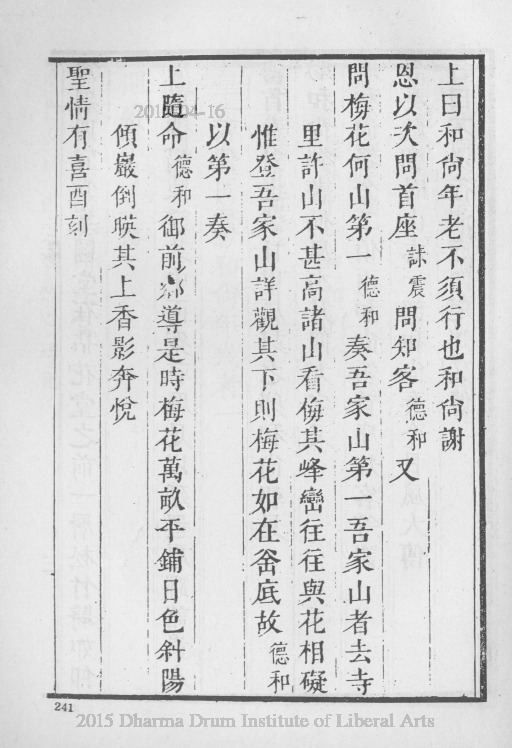 上曰和尙年老不須行也和尙謝
恩以次問首座誄震問知客德和又
問梅花何山第一德和奏吾家山第一吾家山者去寺
里許山不甚高諸山看侮其峰巒往往與花相礙
惟登吾家山詳觀其下則梅花如在峹底故德和
以第一奏
上隨命德和御前鄉導是時梅花萬畝平鋪日色斜陽
傾巖倒暎其上香影奔悅
聖情有喜酉刻
241
2015 Dharma Drum Institute of Liberal Arts